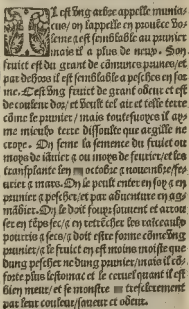 Il est ung arbre appelle muniacus/
ou lappelle en prouece bo
rome & est semblable au prunier
mais il a plus de neux. Son
fruict est du grant de cõmunes prunes/et
par dehors il est semblable a pesches en for
me. Cest ũg fruict de grant odeur et est
de couleur dor/et veult tel air et telle terre
cõme le prunier/mais toutesuoyes il ay
me mieulx terre dissoulte que argille ne
croye. On seme la semence du fruict ou
moys de iãuier & ou moys de feurier/et les
transplante len octobre & nouembre/feu
rier & mars. On le peult enter en soy & en
prunier & pescher/et par aduenture en ag
mãdier. On le doit fouyr souuent et arrou
ser en tẽps sec/& en retrẽcher les rainceaulx
pourris & secs/& doit estre forme cõme ũng
prunier/& le fruict en est moins moiste que
dung pescher ne dung prunier/mais il cõ
forte plus lestomac et le cerueil quant il est
bien meur/et se monstre tresclerement
par leur couleur/saueur et odeur.